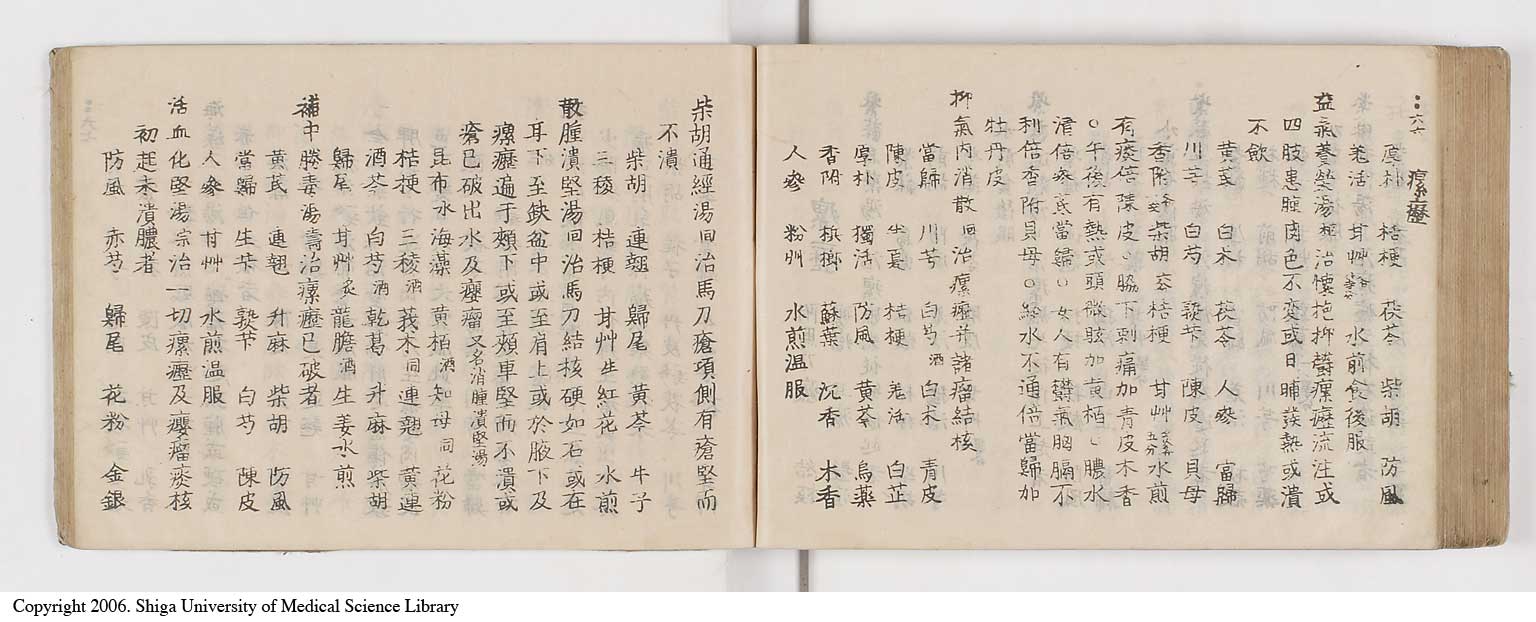 ∴六七 瘰癧
厚朴 桔梗 茯苓 柴胡 防風
羌活 甘艸 水煎食後服
益氣養榮湯 治懷抱抑欝瘰癧流注或
四肢患腫肉色不変或日晡發熱或潰
不飲
黄芪 白朮 茯苓 人參 當歸
川芎 白芍 熟芐 陳皮 貝母
香附 柴胡 桔梗 甘艸五分水煎
有痰倍陳皮○脇下刺痛加青皮木香
○午後有熱或頭微眩加黄栢○膿水
清倍參芪當歸○女人有欝氣胸膈不
利倍香附貝母○給水不通倍當歸加
牡丹皮
抑氣内消散回治瘰癧并諸瘤結核
當歸 川芎 白芍酒 白朮 青皮
陳皮 半夏 桔梗 羌活 白芷
厚朴 獨活 防風 黄芩 烏薬
香附 梹榔 蘇葉 沉香 木香
人參 粉艸 水煎温服
柴胡通經湯回治馬刀瘡項側有瘡堅而
不潰
柴胡 連翹 歸尾 黄芩 牛子
三稜 桔梗 甘艸生 紅花 水煎
散腫潰堅湯回治馬刀結核硬如石或在
耳下至缺盆中或至肩上或於腋下及
瘰癧遍于頬下或至頬車堅而不潰或
瘡已破出水及癭瘤又名消腫潰堅湯
昆布水 海藻 黄栢酒 知母同 花粉
桔梗 三稜酒 莪朮同 連翹 黄連
酒芩 白芍酒 乾葛 升麻 柴胡
歸尾 甘艸炙 龍膽酒 生姜水煎
補中勝毒湯壽治瘰癧已破者
黄芪 連翹 升麻 柴胡 防風
當歸 生芐 熟芐 白芍 陳皮
人參 甘艸 水煎温服
活血化堅湯宗治一切瘰癧及癭瘤痰核
初起未潰膿者
防風 赤芍 歸尾 花粉 金銀